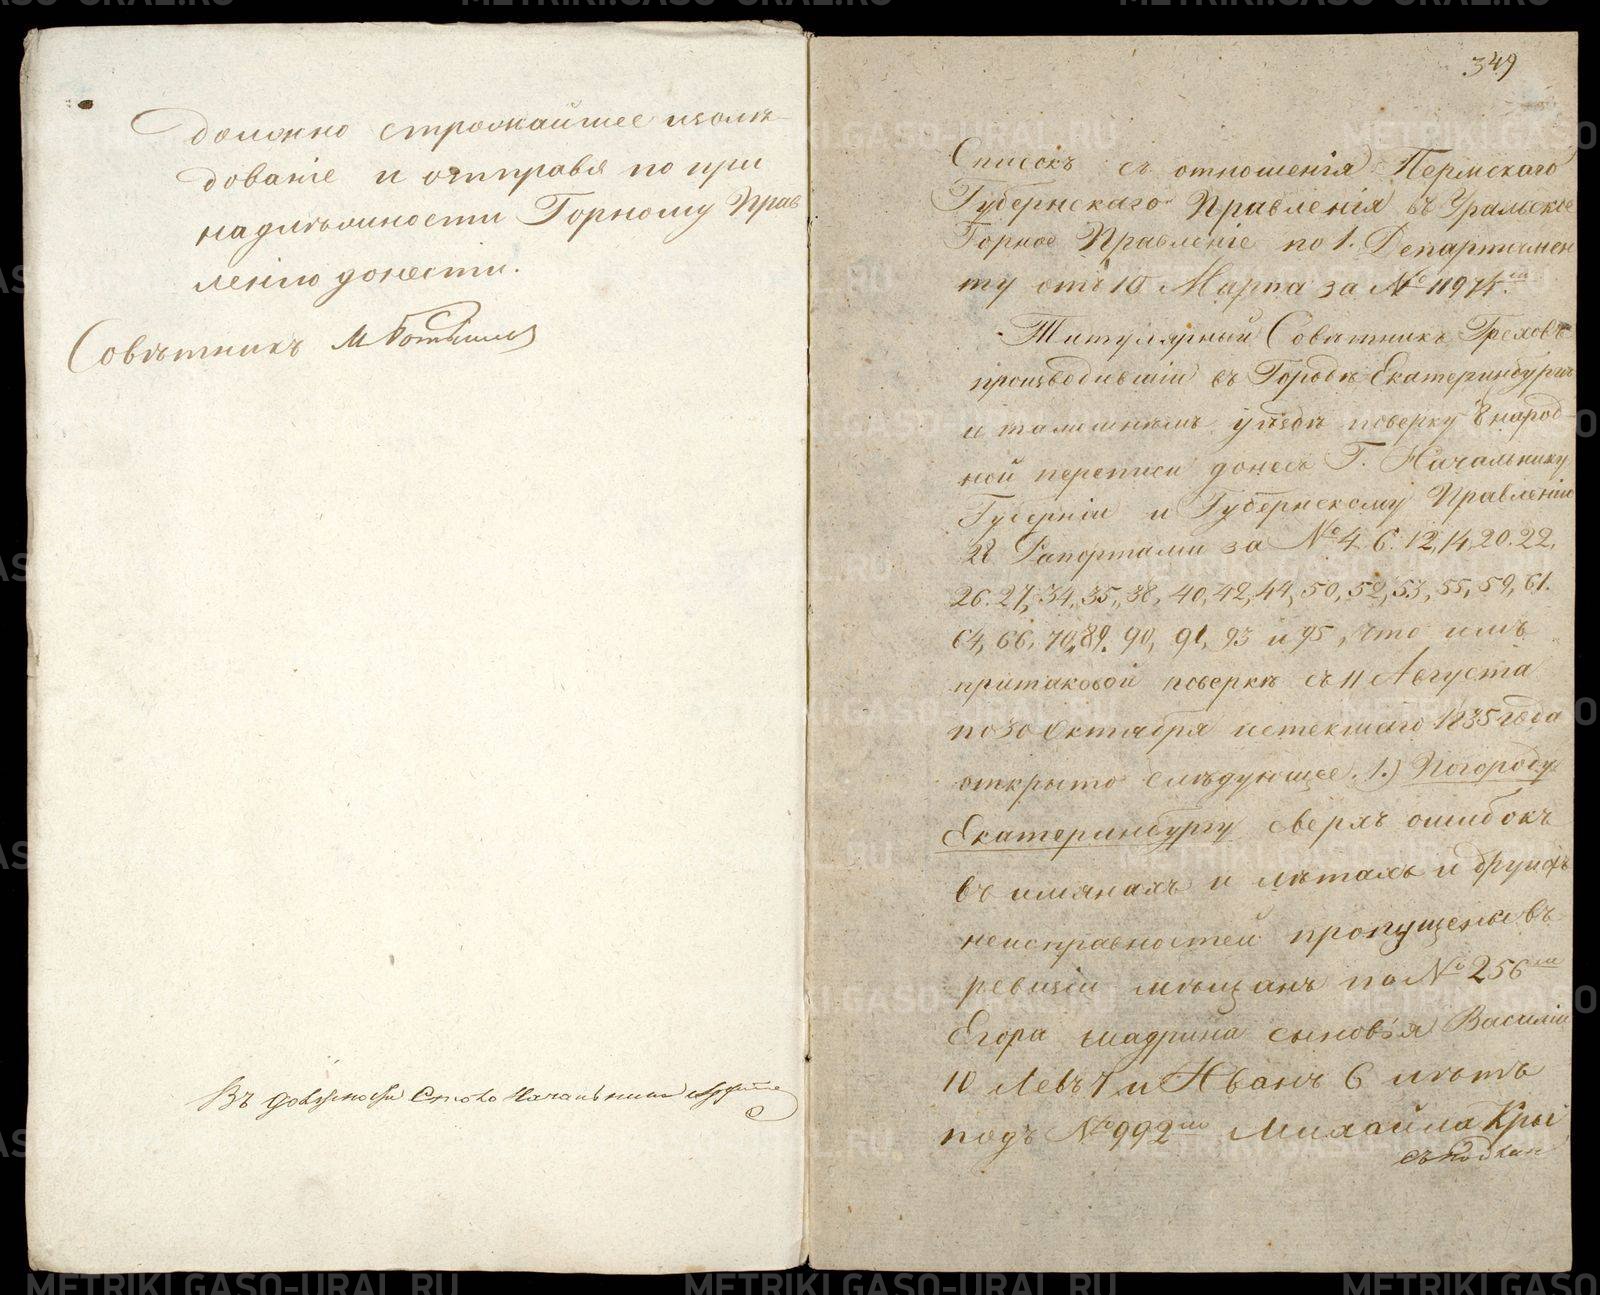 должно строжайшее изслѣ-
дованіе и отправя по при
надлѣжности Горному Прав
ленію донести.
Совѣтникъ
Въ должности Столоначальника
349
Списокъ съ отношенія Пермскаго
Губернскаго Правленія въ Уральское
Горное Правленіе по 1. Департамен
ту отъ 10 Марта за № 11974.
Титулярный Совѣтникъ Греховъ
производившій въ Городѣ Екатеринбургѣ
и тамошнемъ уѣздѣ поверку 8 народ-
ной переписи донесъ Г. Начальнику
Губерніи и Губернскому Правленію
28 Рапортами за № 4. 6. 12, 14, 20. 22,
26. 27, 34, 35, 38, 40, 42, 44, 50, 52, 53, 55, 59, 61.
64, 66, 70, 89. 90, 91, 93 и 95, что имъ
притаковой поверкѣ съ 11 Августа
по 30 Октября истекшаго 1835 года
открыто слѣдующее. 1.) Погороду
Екатеринбургу сверхъ ошибокъ
въ имянахъ и лѣтахъ и другихъ
неисправностей пропущены въ
ревизіи мѣщанъ по № 256
Егора Шадрина сыновья Василій
10 Левъ 7 и Иванъ 6 лѣтъ
подъ № 992 Михайла Кры
METRIKI.GASO-URAL.RU